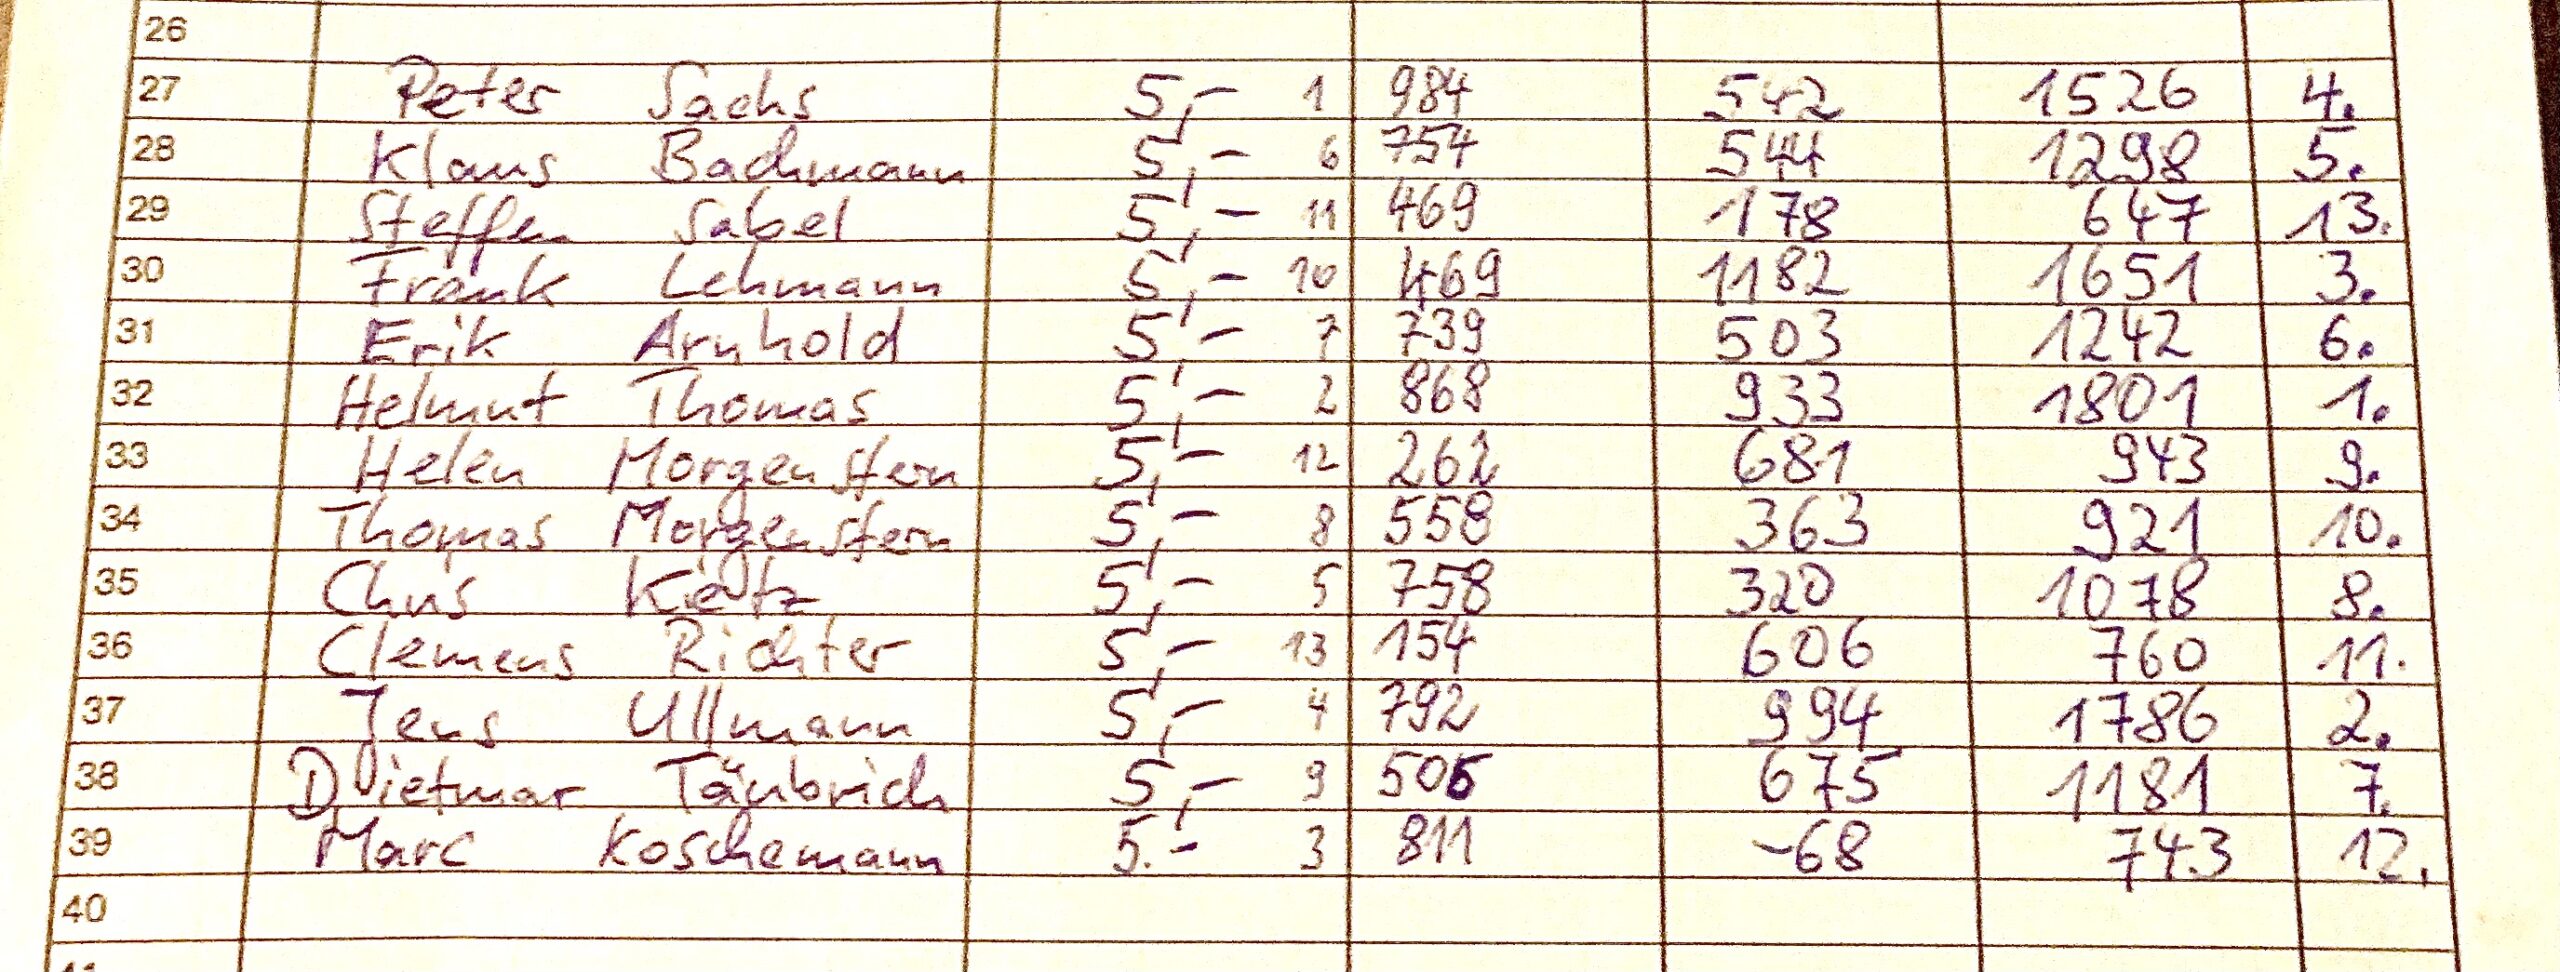 26
27 Peter Sachs 5,- 1 984 542 1526 4.
28 Klaus Bachmann 5,- 6 754 544 1298 5.
29 Steffen Sabel 5,- 11 469 178 647 13.
30 Frank Lehmann 5,- 10 469 1182 1651 3.
31 Erik Arnhold 5,- 7 739 503 1242 6.
32 Helmut Thomas 5,- 2 868 933 1801 1.
33 Helen Morgenstern 5,- 12 262 681 943 9.
34 Thomas Morgenstern 5,- 8 558 363 921 10.
35 Chris 5,- 5 758 320 1078 8.
36 Clemens Richter 5,- 13 154 606 760 11.
37 Jens Ullmann 5,- 4 792 994 1786 2.
38 Dietmar Täubrich 5,- 9 506 675 1181 7.
39 Marc Koschemann 5.- 3 811 -68 743 12.
40